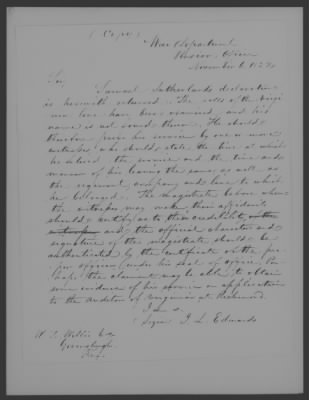 (Copy)
War Department
Pension Office
November 6. 1832
Sir,
Samuel Sutherlands declaration
is herewith returned. The rolls of the Virgi-
nia line have been examined, and his
name is not found thereon. He should
therefore prove his service by one or more
witnesses who should state the time at which
he entered the service and the time and
manner of his leaving the same as well as
the regiment company and line to which
he belonged. The magistrate before whom
the witnesses may make their affidavits
should certify as to their credibility
and the official character and
signature of the magistrate should be
authenticated by the certificate of the pro-
per officer under his seal of office. Per-
haps the claimant may be able to obtain
some evidence of his service on application
to the Auditor of Virginia at Richmond.
I. L. Edwards
Signed
Esq